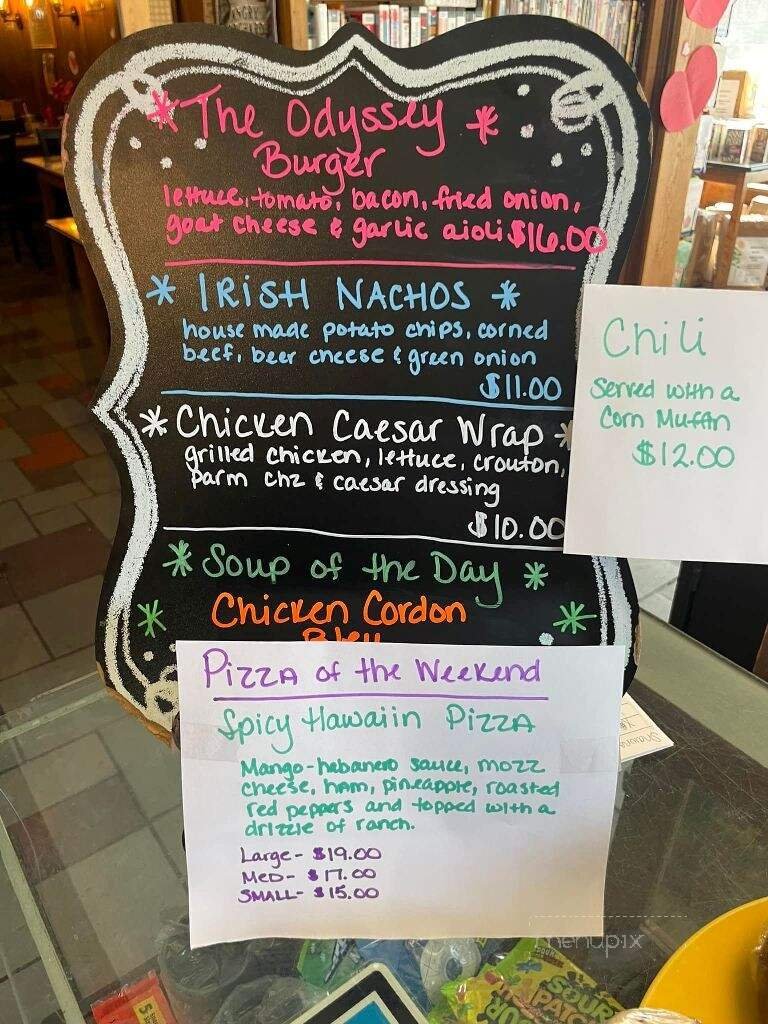 * The Odyssey *
Burger
lettuce, tomato, bacon, fried onion,
goat cheese & garlic aioli $16.00
* IRISH NACHOS *
house made potato chips, corned
beef, beer cheese & green onion
$11.00
* Chicken Caesar Wrap *
grilled chicken, lettuce, crouton,
parm chz & caesar dressing
$10.00
* Soup of the Day *
* Chicken Cordon *
Bleu
Chili
Served with a
Corn Muffin
$12.00
Pizza of the Weekend
Spicy Hawaiin Pizza
Mango-habanero sauce, mozz
cheese, ham, pineapple, roasted
red peppers and topped with a
drizzle of ranch.
Large - $19.00
Med - $17.00
Small - $15.00
menupix
SOUR
PATCH